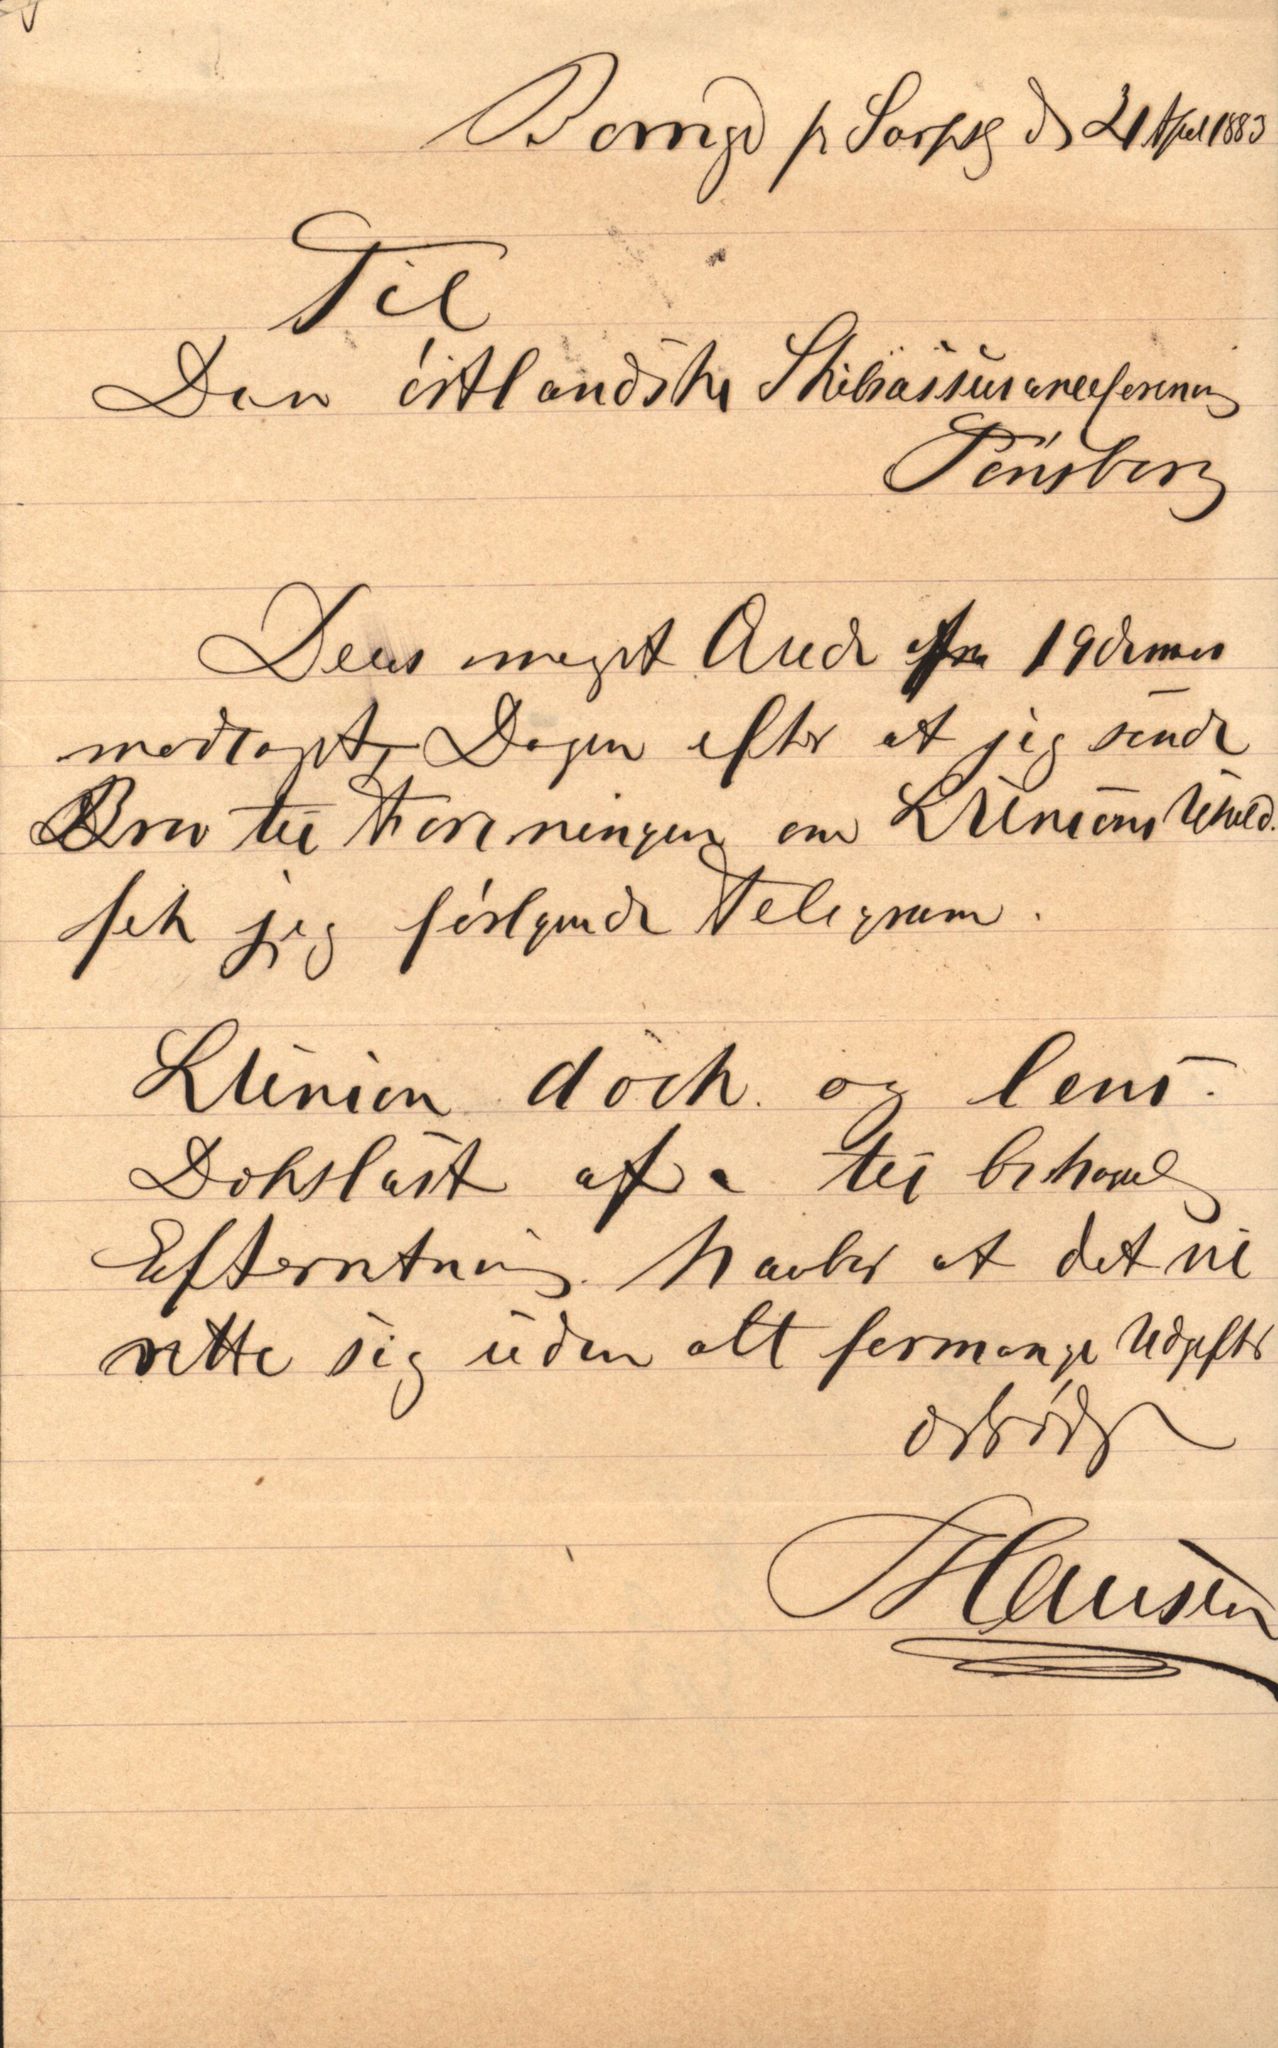 Borregd pr Sarpsbg d 21 April 1883
Til
Den östlandske Skibsassuranceforening
Tönsberg
Deres meget Ærede af 19 dennes
modtaget, Dagen efter at jeg sende
Brev til Foreningen om LUnions Uheld.
fek jeg förlgende Telegram.
LUnion dock og lens.
Dekslast af. til behagelig
Efterretning. haaber at det vil
rette sig uden alt formange Udgifter
ærbödigst
Hansen